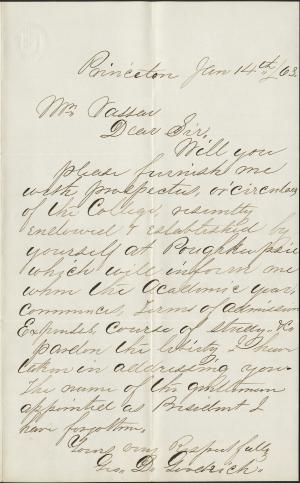 Princeton Jan 14th/63.
Mr. Vassar
Dear Sir,
Will you
please furnish me
with prospectus, or circular
of the College, recently
endowed & established by
yourself at Poughkeepsie
which will inform me
when the Academic year,
commences, Terms of admission
Expenses, Course of study &c
pardon the liberty I have
taken in addressing you.
The name of the gentleman
appointed as President I
have forgotten.
Yours very Respectfully
Geo. D. Goodrich.